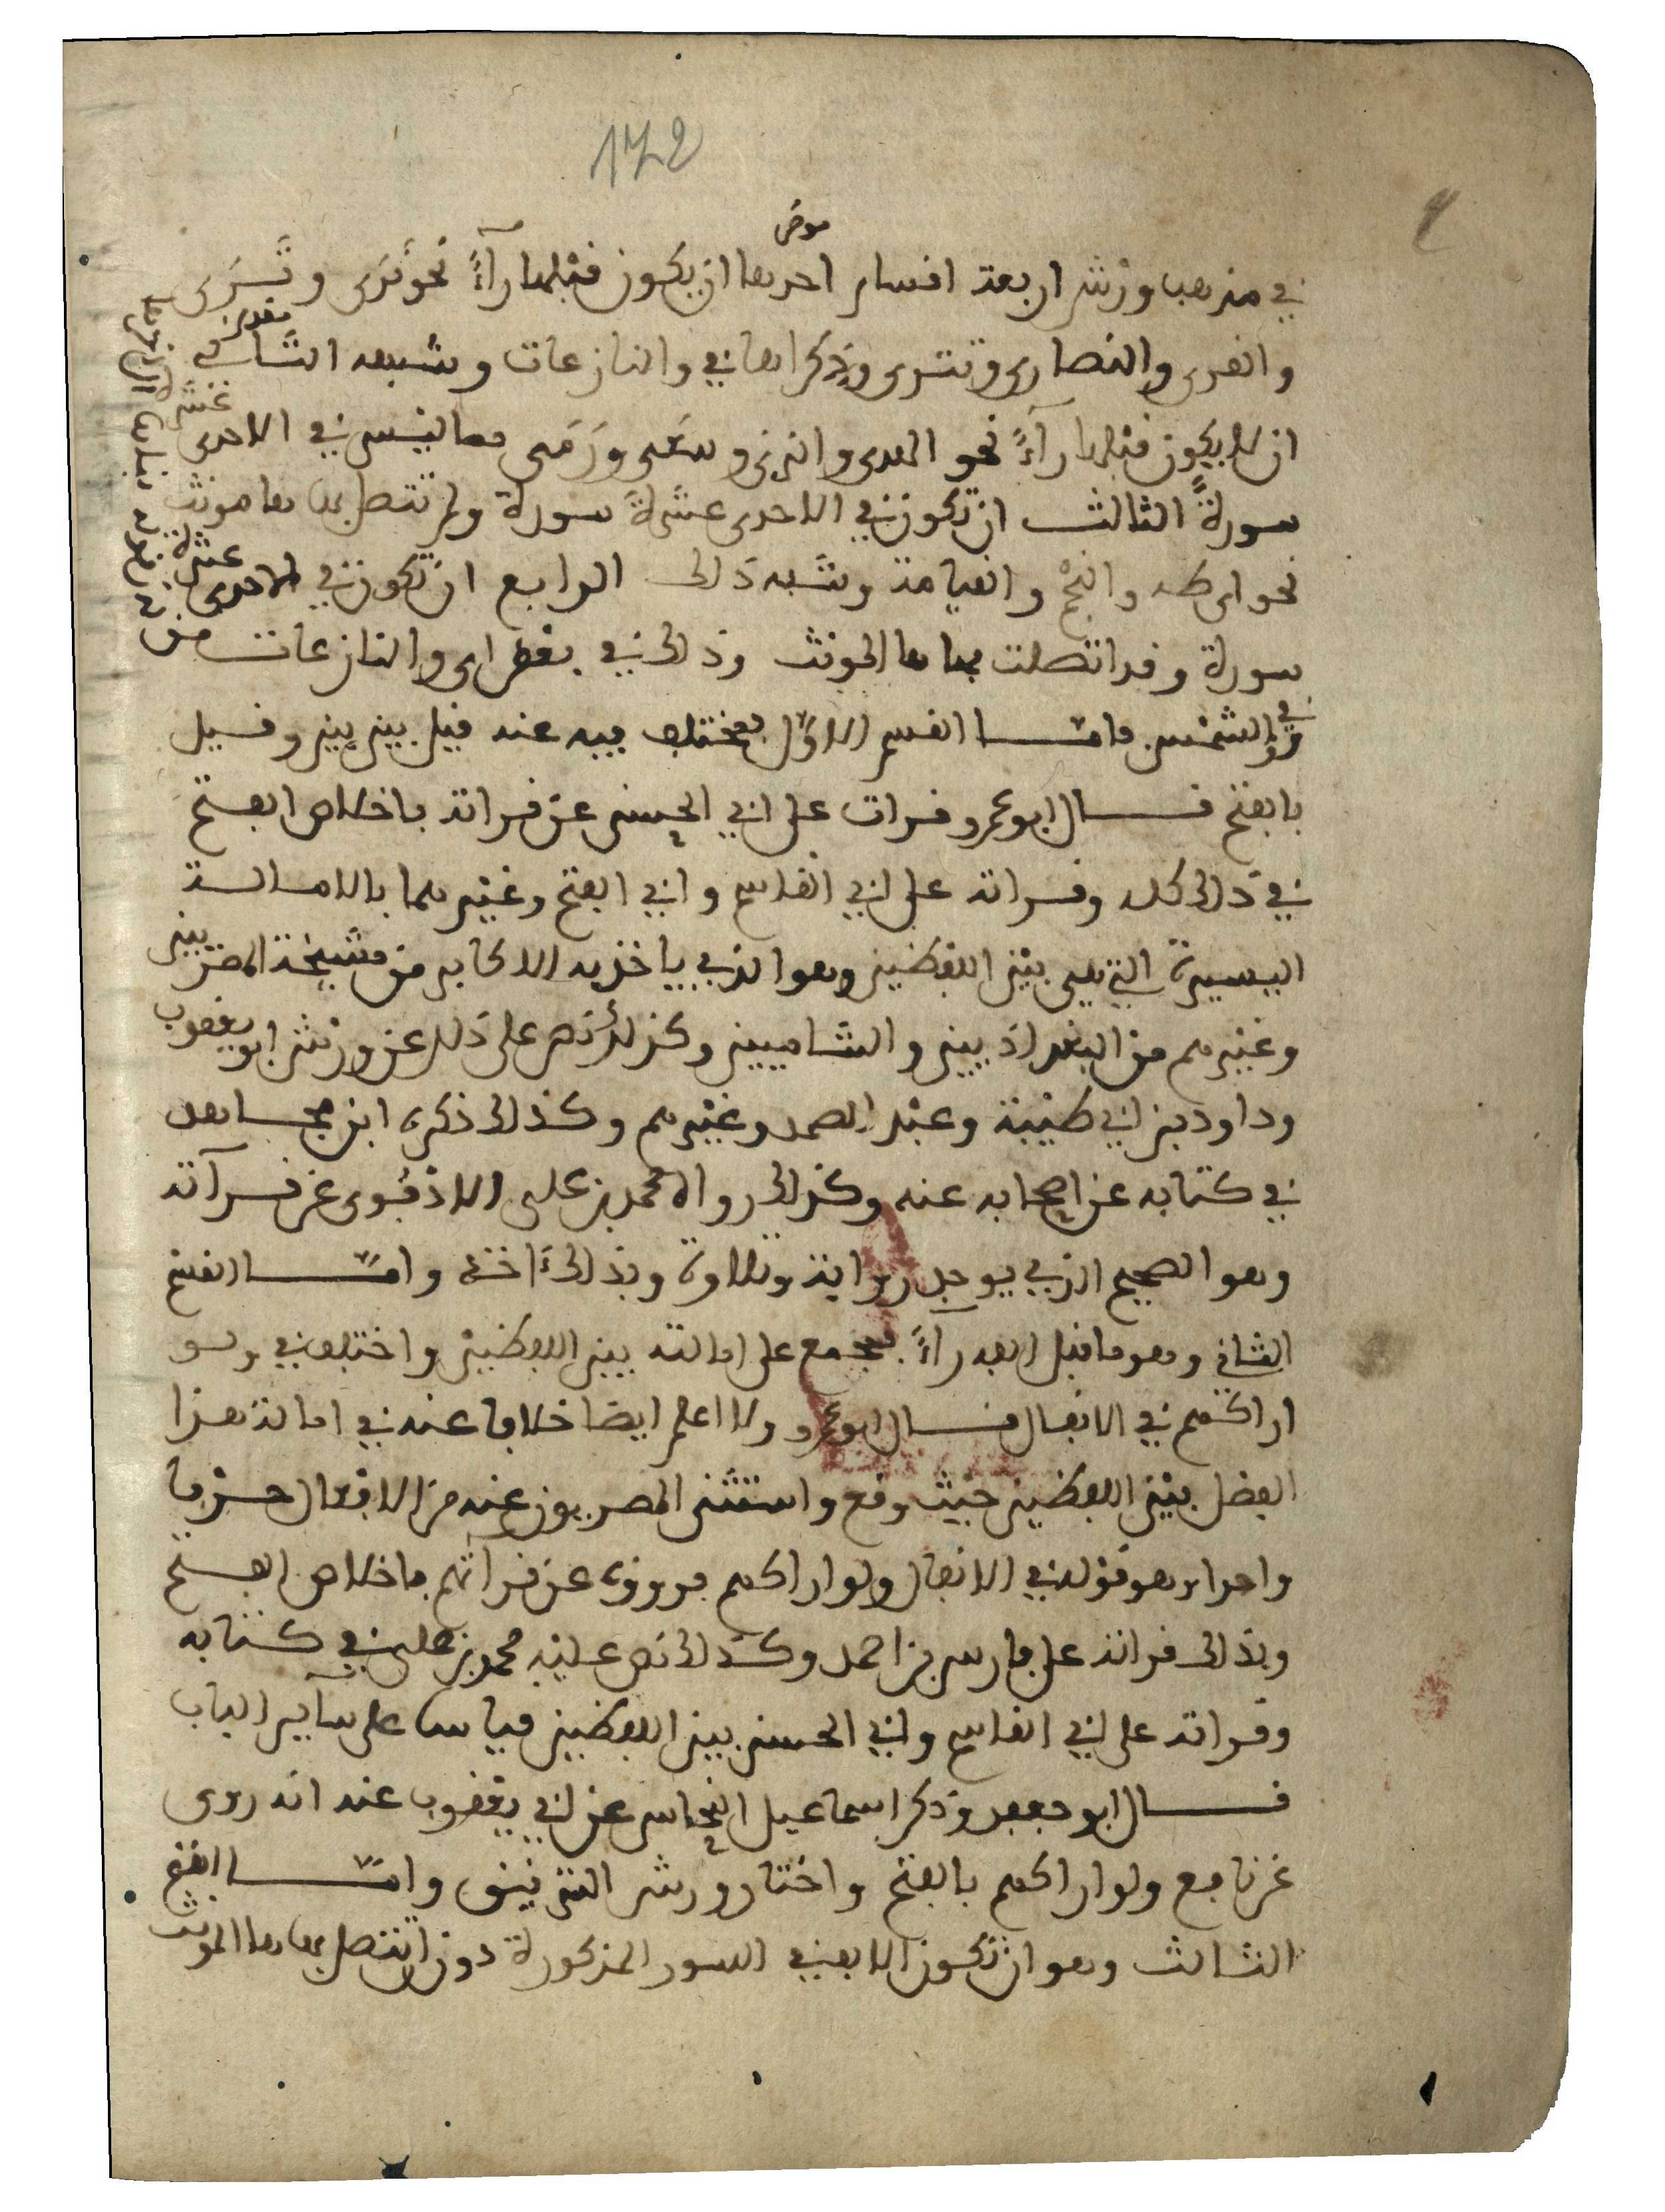 172
موض
في مذهب ورش اربعة اقسام احدها ان يكون قبلها رآءً نحو نَرَى وتَسَرَى
والقرى والنصارى وتترى وذكراها في والنازعات وشبهه الثانى
ان لا يكون قبلها رآءً نحو الهدى والزنى وسَعى ورَمَى مما ليس في الاحدى عشرة
سورةً الثالث ان تكون في الاحدى عشرة سورة ولم تتصل بها ها مونث
نحو اى طه والنجْم والقيامة وشبه ذالك الرابع ان تكون في الاحدى عشرة
سورة وقد اتصلت بها ها المونث وذالك في بعض اى والنازعات من
وفي والشمس فامّا القسم الاوّل فمختلف فيه عنه قيل بين بين وقيل
بالفتح قال ابو عمرو قرات على ابي الحسن عن قراته باخلاص الفتح
في ذالك كله وقراته على ابي القاسم وابي الفتح وغيرهما بالامالة
اليسيرة التي هي بين اللفظين وهو الذي ياخذ به الاكابر من مشيخة المصريين
وغيرهم من البغداذيين والشاميين وكذلك نص على ذلك عن ورش ابو يعقوب
وداود بن ابي طيبة وعبد الصمد وغيرهم وكذالك ذكره ابن مجاهد
في كتابه عن اصحابه عنه وكذالك رواه محمد بن علي الاذفوى عن قرآته
وهو الصحيح الذي يوجد رواية وتلاوة وبذالك ءاخذ وامّا القسم
الثاني وهو ما قبل الفه رآءً فمجمع على امالته بين اللفظين واختلف في ولو
اراكهم في الانفال قال ابو عمرو ولا اعلم ايضا خلافا عنه في امالة هذا
الفصل بين اللفظين حيث وقع واستثنى المصريون عنه من الافعال حرفا
واحدا وهو قوله في الانفال ولو اراكهم فرووه عن قرآتهم باخلاص الفتح
وبذالك قراته على فارس بن احمد وكذالك نص عليه محمد بن علي في كتابه
وقراته على ابي القاسم وابي الحسن بين اللفظين قياسا على سآير الباب
قال ابو جعفر وذكر اسماعيل النحاس عن ابي يعقوب عنه انه روى
عن نافع ولو اراكهم بالفتح واختار ورش الترقيق وامّا القسم
الثالث وهو ان تكون الالف في السور المذكورة دون ان تتصل بها ها المونث